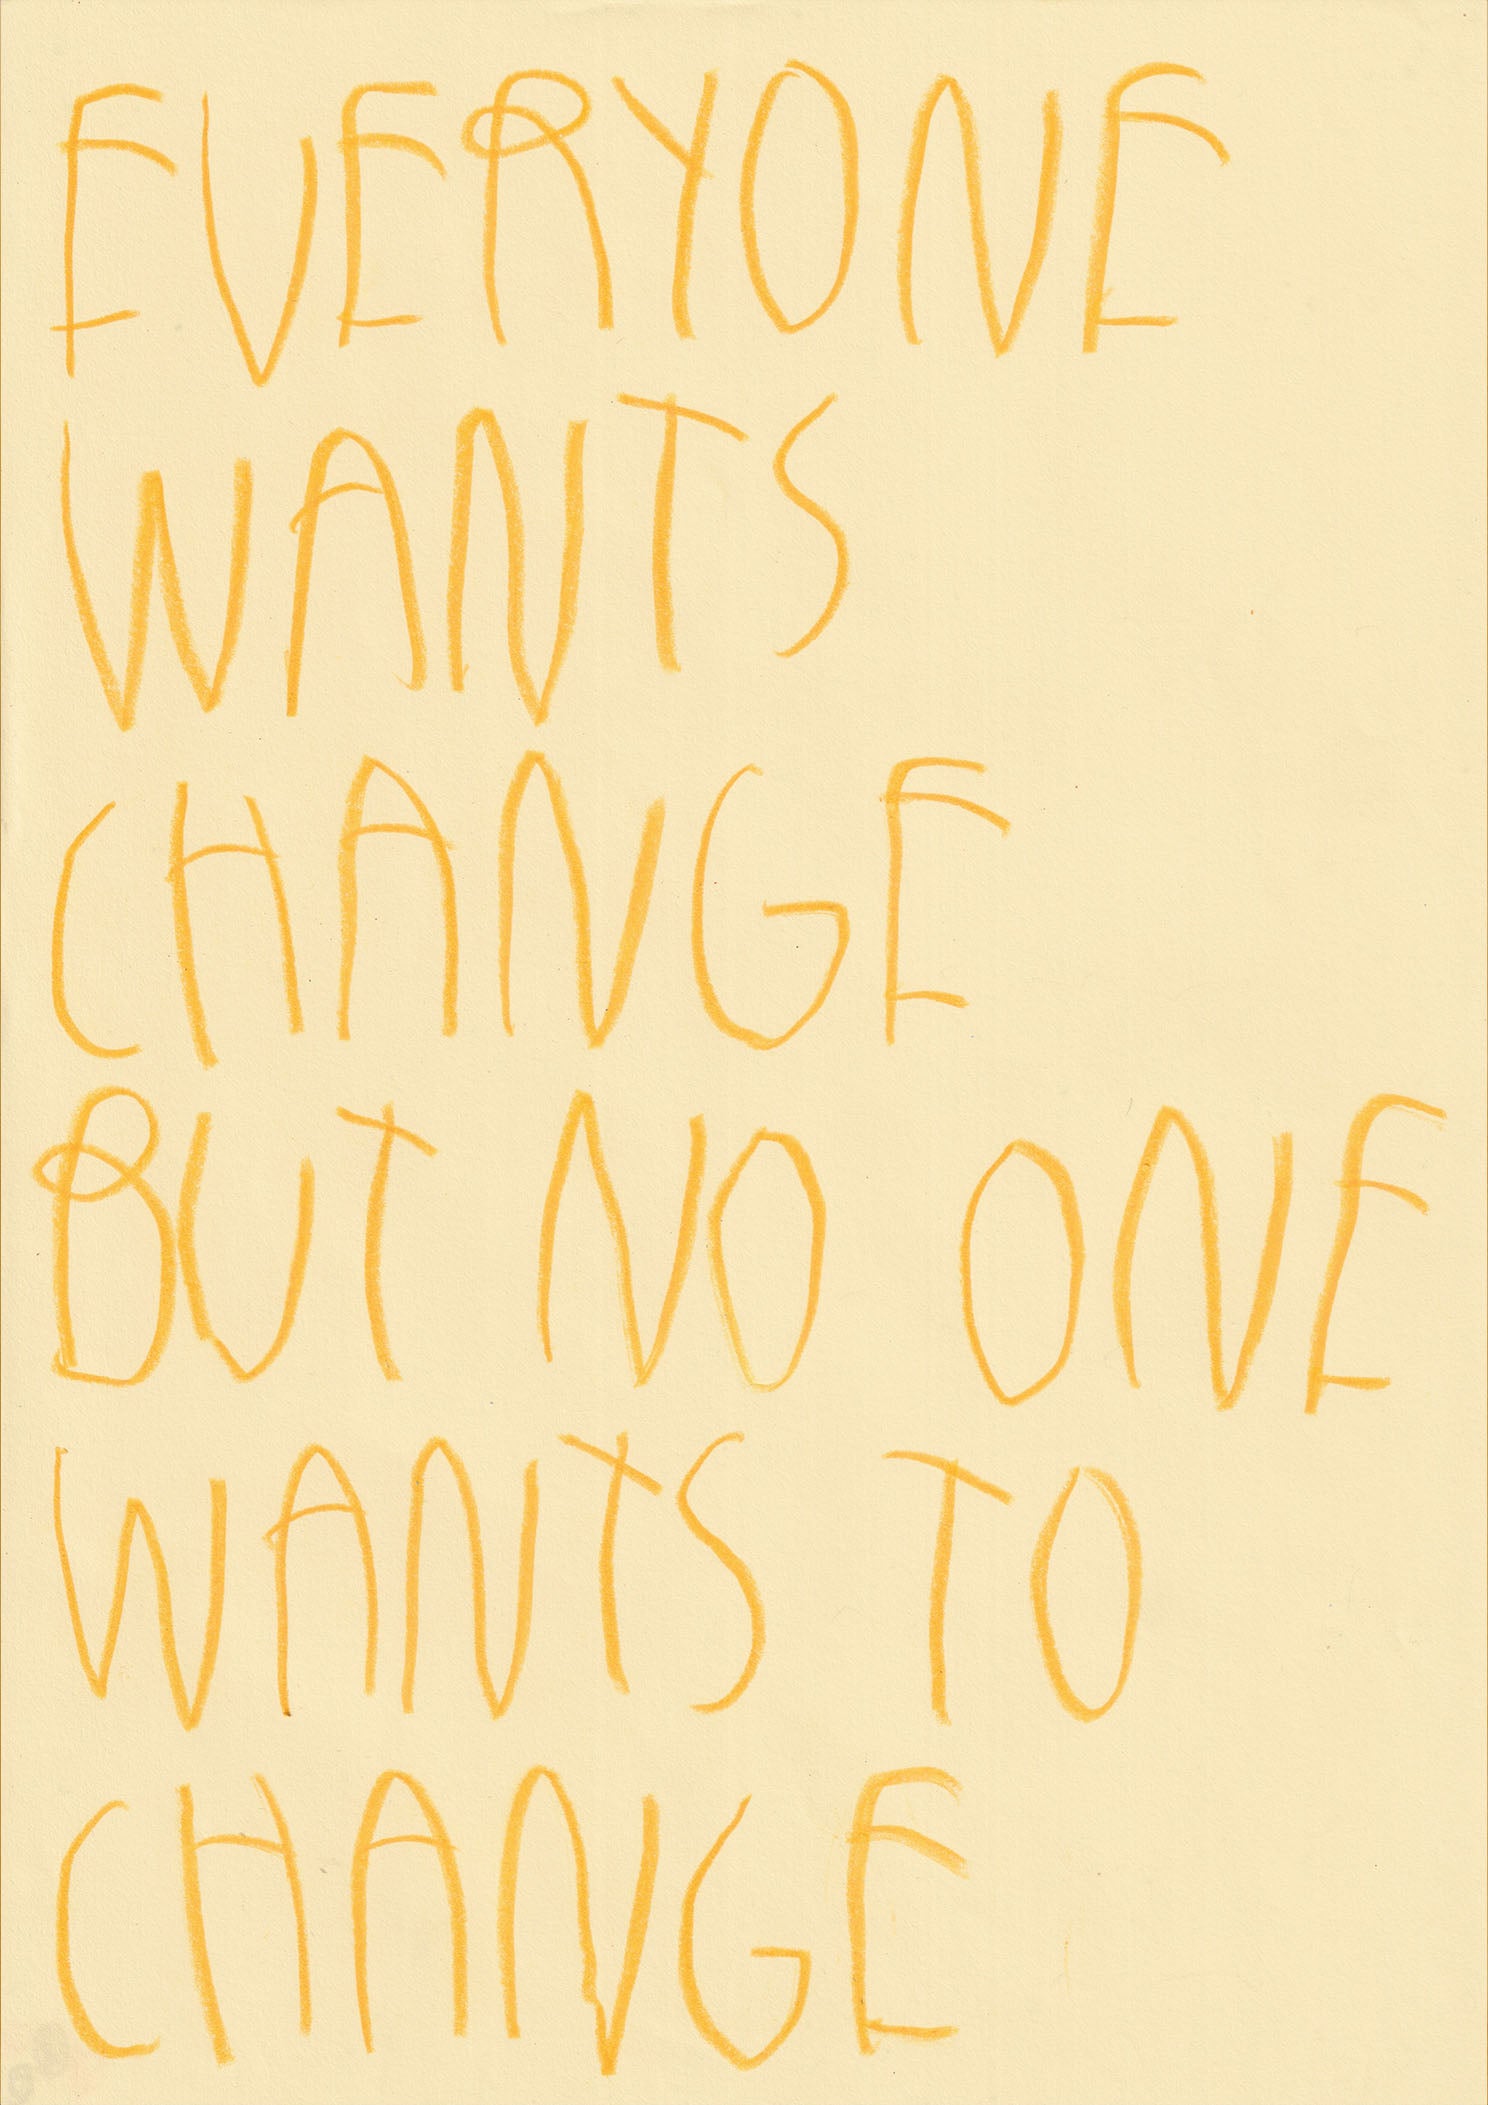 EVERYONE
WANTS
CHANGE
BUT NO ONE
WANTS TO
CHANGE